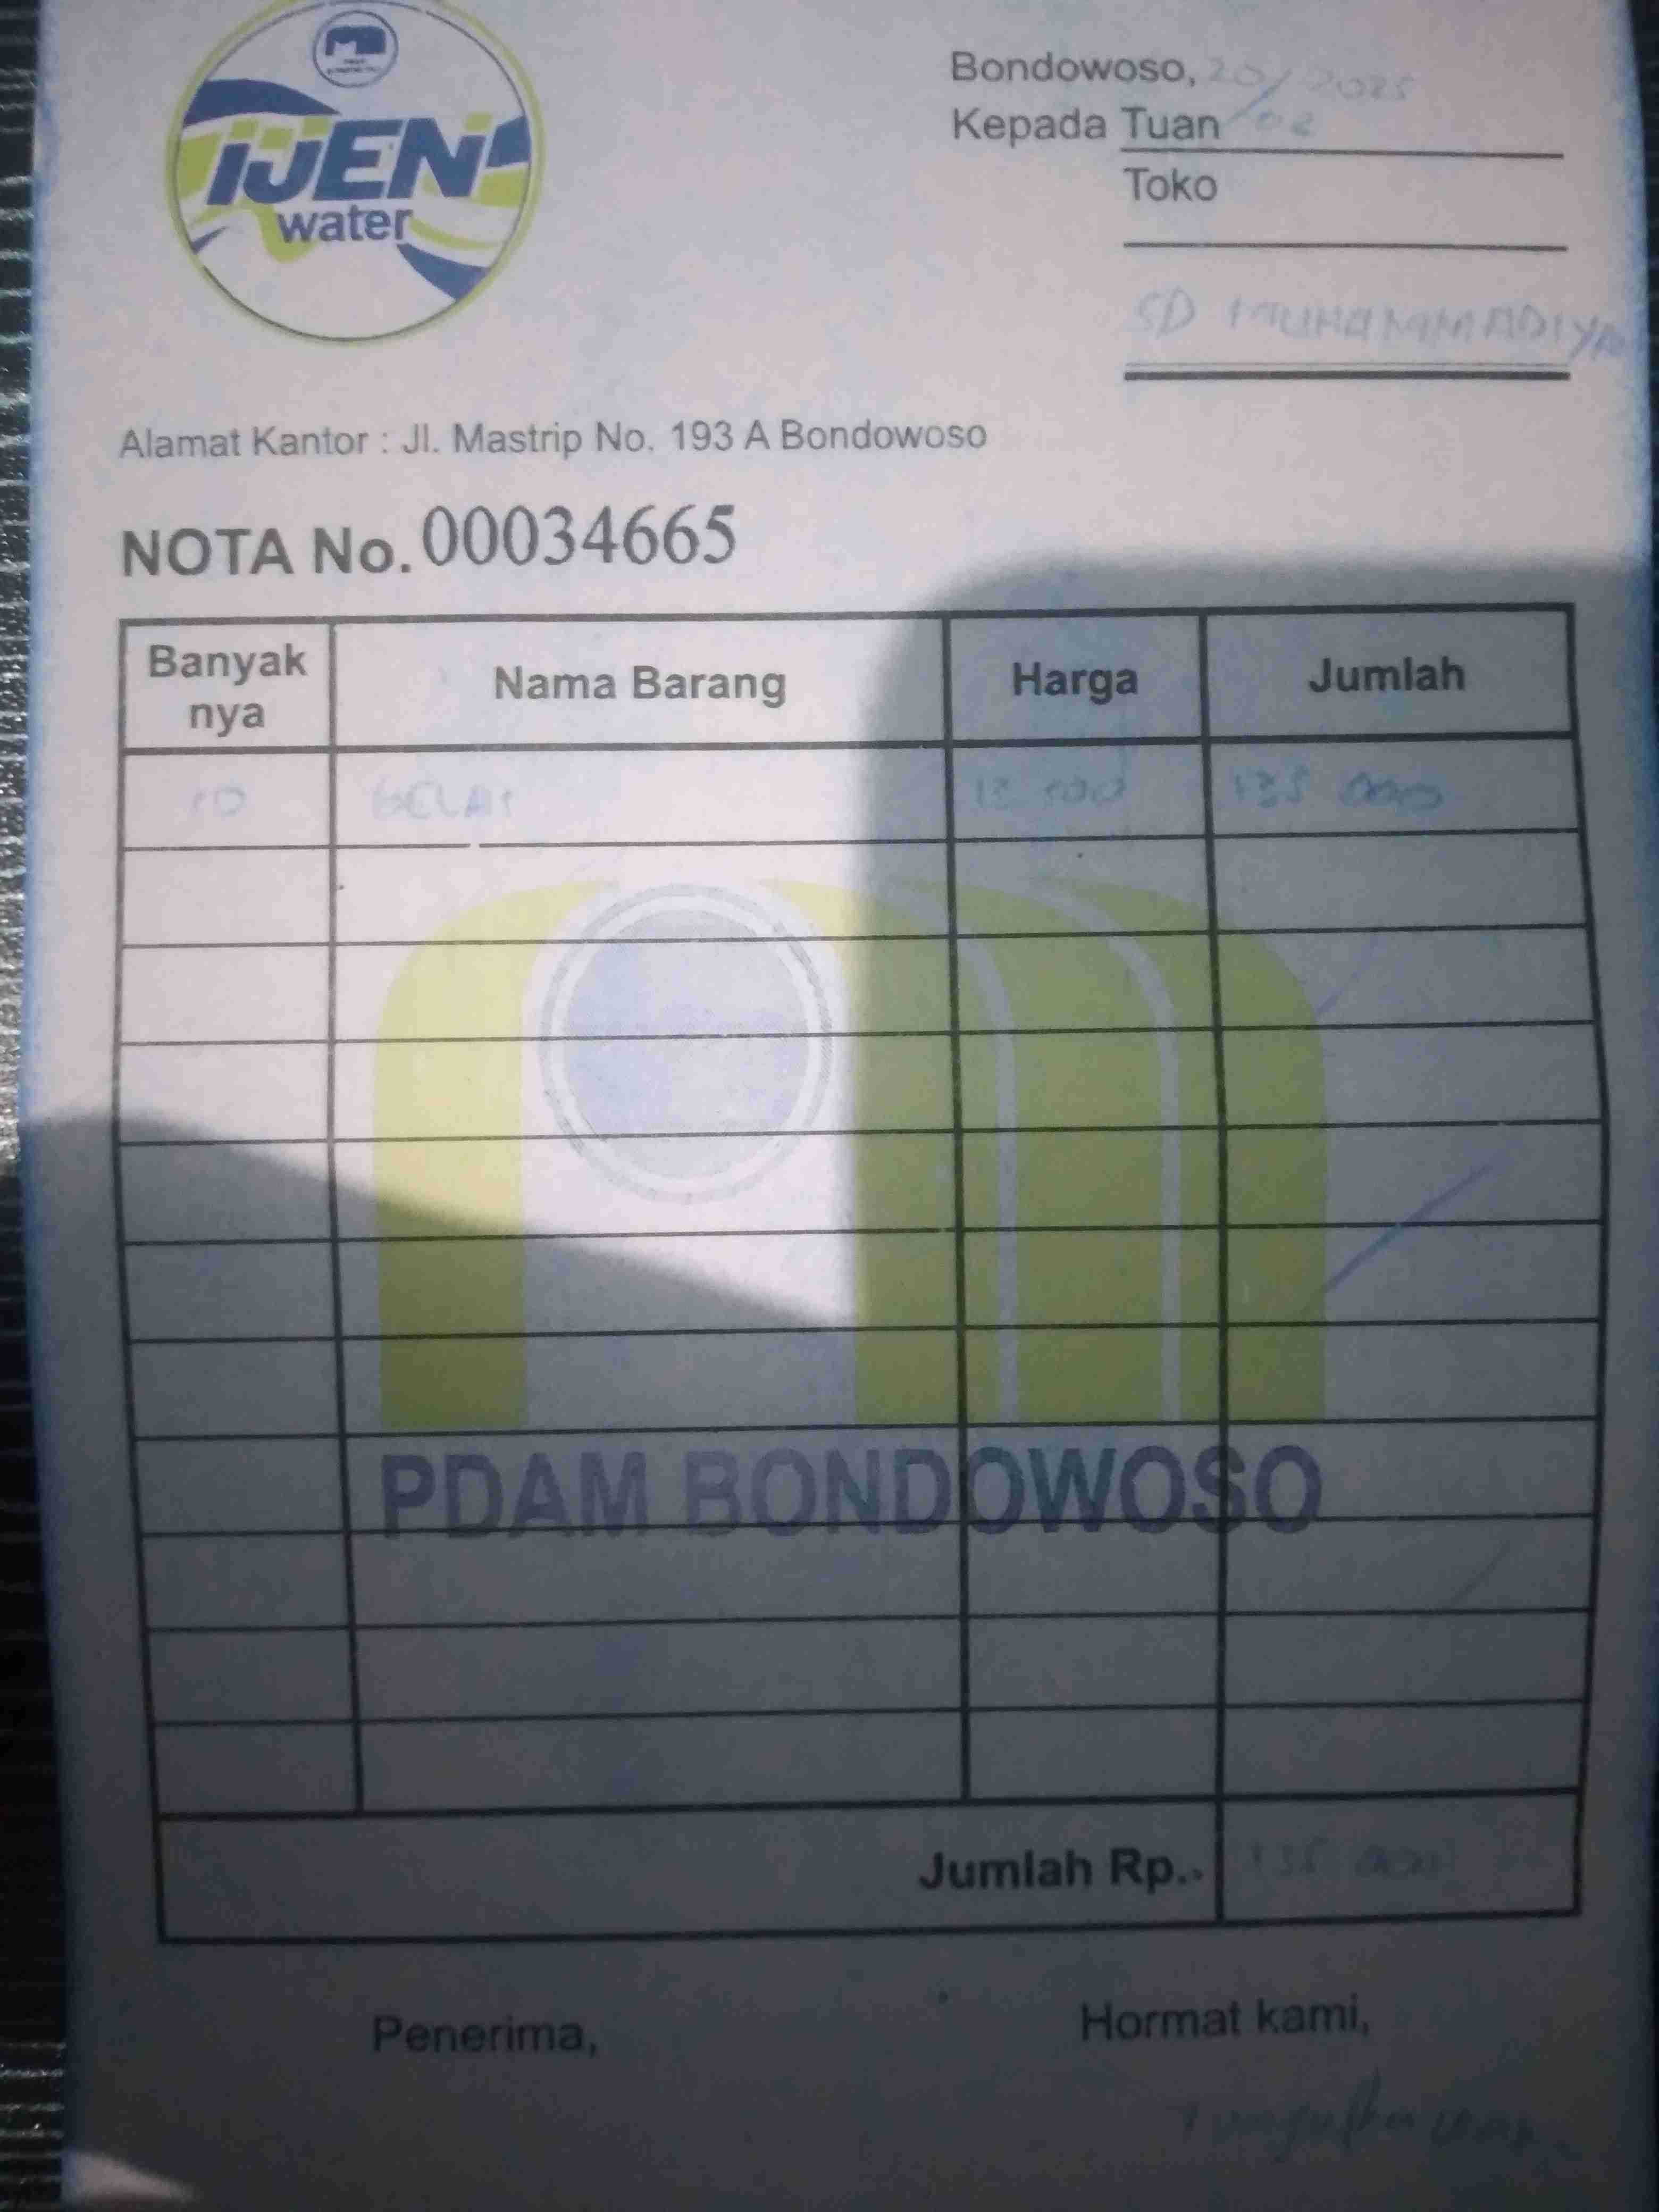 IJEN
water
Bondowoso, 20/02 2025
Kepada Tuan
Toko
SD MUHAMMADIYA
Alamat Kantor : Jl. Mastrip No. 193 A Bondowoso
NOTA No. 00034665
Banyak nya Nama Barang Harga Jumlah
10 GELAS 13 500 135 000
PDAM BONDOWOSO
Jumlah Rp.. 135 000
Penerima, Hormat kami,